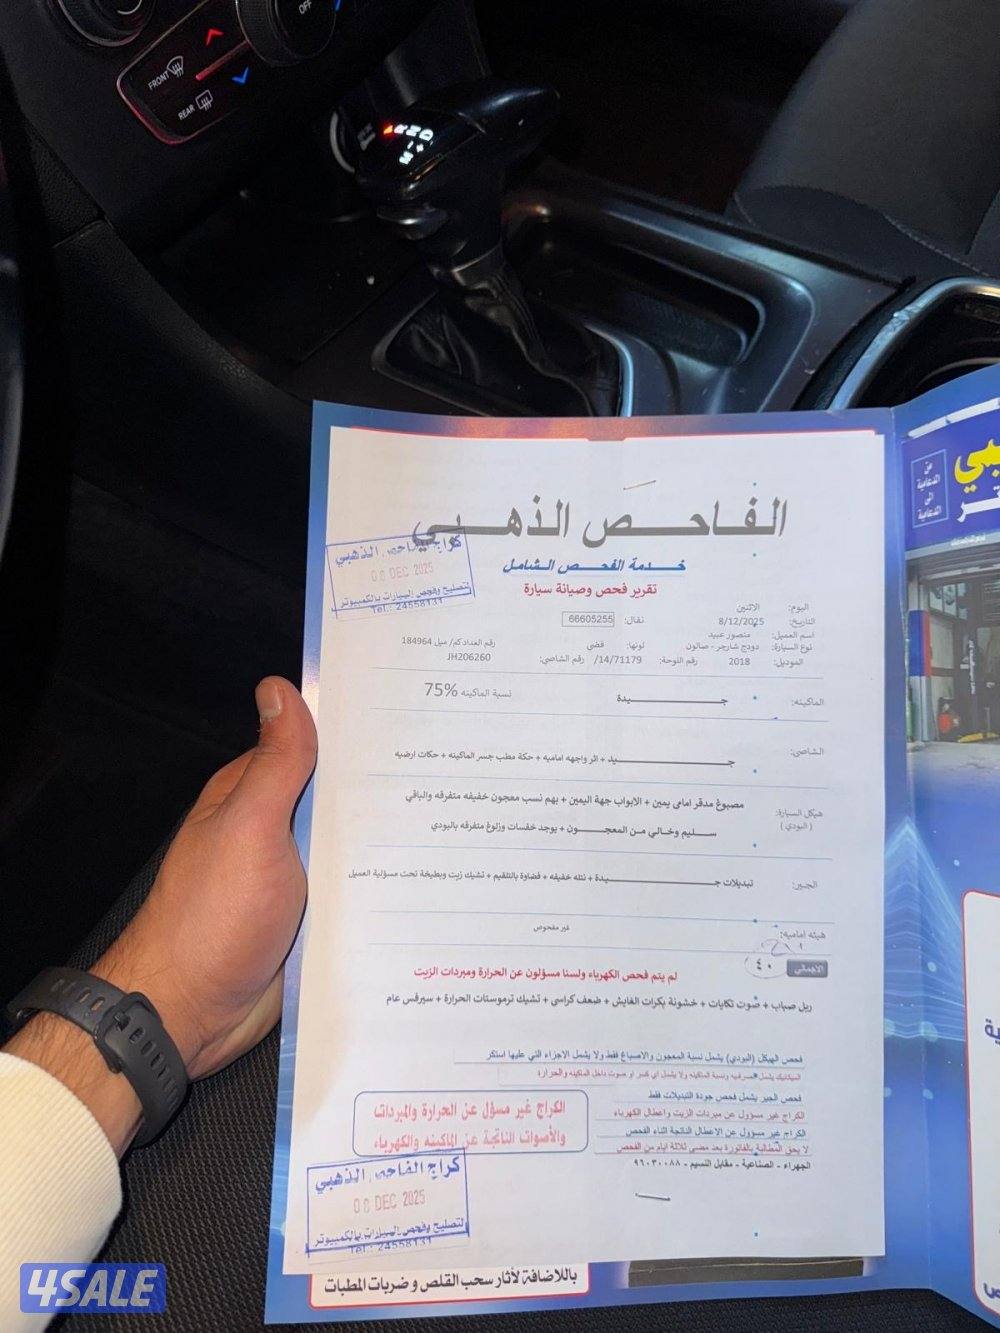 OFF
FRONT
REAR
الفاحص الذهبي
خدمة الفحص الشامل
تقرير فحص وصيانة سيارة
كراج الفاحص الذهبي
08 DEC 2025
لتصليح وفحص السيارات بالكمبيوتر
Tel.: 24558131
اليوم: الاثنين
التاريخ: 8/12/2025 نقال: 66605255
اسم العميل: منصور عبيد
نوع السيارة: دودج شارجر - صالون لونها: فضى رقم العداد كم/ ميل 184964
الموديل: 2018 رقم اللوحة: 14/71179/ رقم الشاصي: JH206260
الماكينه: جيدة نسبة الماكينه 75%
الشاصى: جيد + اثر واجهه اماميه + حكة مطب جسر الماكينه + حكات ارضيه
هيكل السيارة: مصبوغ مدقر امامى يمين + الابواب جهة اليمين + بهم نسب معجون خفيفه متفرقه والباقي
( البودي ) سليم وخالي من المعجون + يوجد خفسات وزلوغ متفرقه بالبودي
الجير: تبديلات جيدة + نتله خفيفه + فضاوة بالتلقيم + تشيك زيت وبطيخة تحت مسؤلية العميل
هيئه اماميه: غير مفحوص
الاجمالي ٤٠
لم يتم فحص الكهرباء ولسنا مسؤلون عن الحرارة ومبردات الزيت
ريل صباب + صوت تكايات + خشونة بكرات القايش + ضعف كراسى + تشيك ترموستات الحرارة + سيرفس عام
فحص الهيكل (البودي) يشمل نسبة المعجون والاصباغ فقط ولا يشمل الاجزاء التي عليها استكر
الميكانيك يشمل مصرفيه ونسبة الماكينه ولا يشمل اي كسر او صوت داخل الماكينه والحرارة
فحص الجير يشمل فحص جودة التبديلات فقط
الكراج غير مسؤول عن مبردات الزيت واعطال الكهرباء
الكراج غير مسؤول عن الاعطال الناتجة اثناء الفحص
لا يحق المطالبة بالفاتورة بعد مضى ثلاثة ايام من الفحص
الجهراء - الصناعية - مقابل النسيم - ٩٦٠٣٠٠٨٨
الكراج غير مسؤل عن الحرارة والمبردات
والأصوات الناتجة عن الماكينه والكهرباء
كراج الفاحص الذهبي
08 DEC 2025
لتصليح وفحص السيارات بالكمبيوتر
Tel.: 24558131
باللاضافة لأثار سحب القلص و ضربات المطبات
من
الدعامية
الى
الدعامية
4SALE